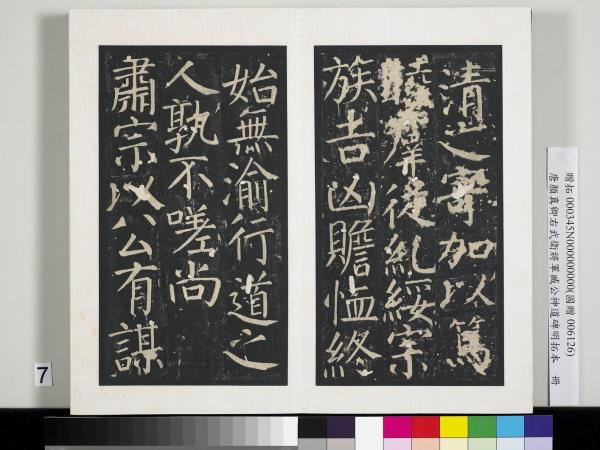 清之寄加以篤
睦羣從糺綏宗
族吉凶贍恤終
始無渝行道之
人孰不嗟尚
肅宗以公有謀
贈拓 000345N000000000(國贈 006126)
唐顏真卿右武衛將軍臧公神道碑明拓本 冊
7